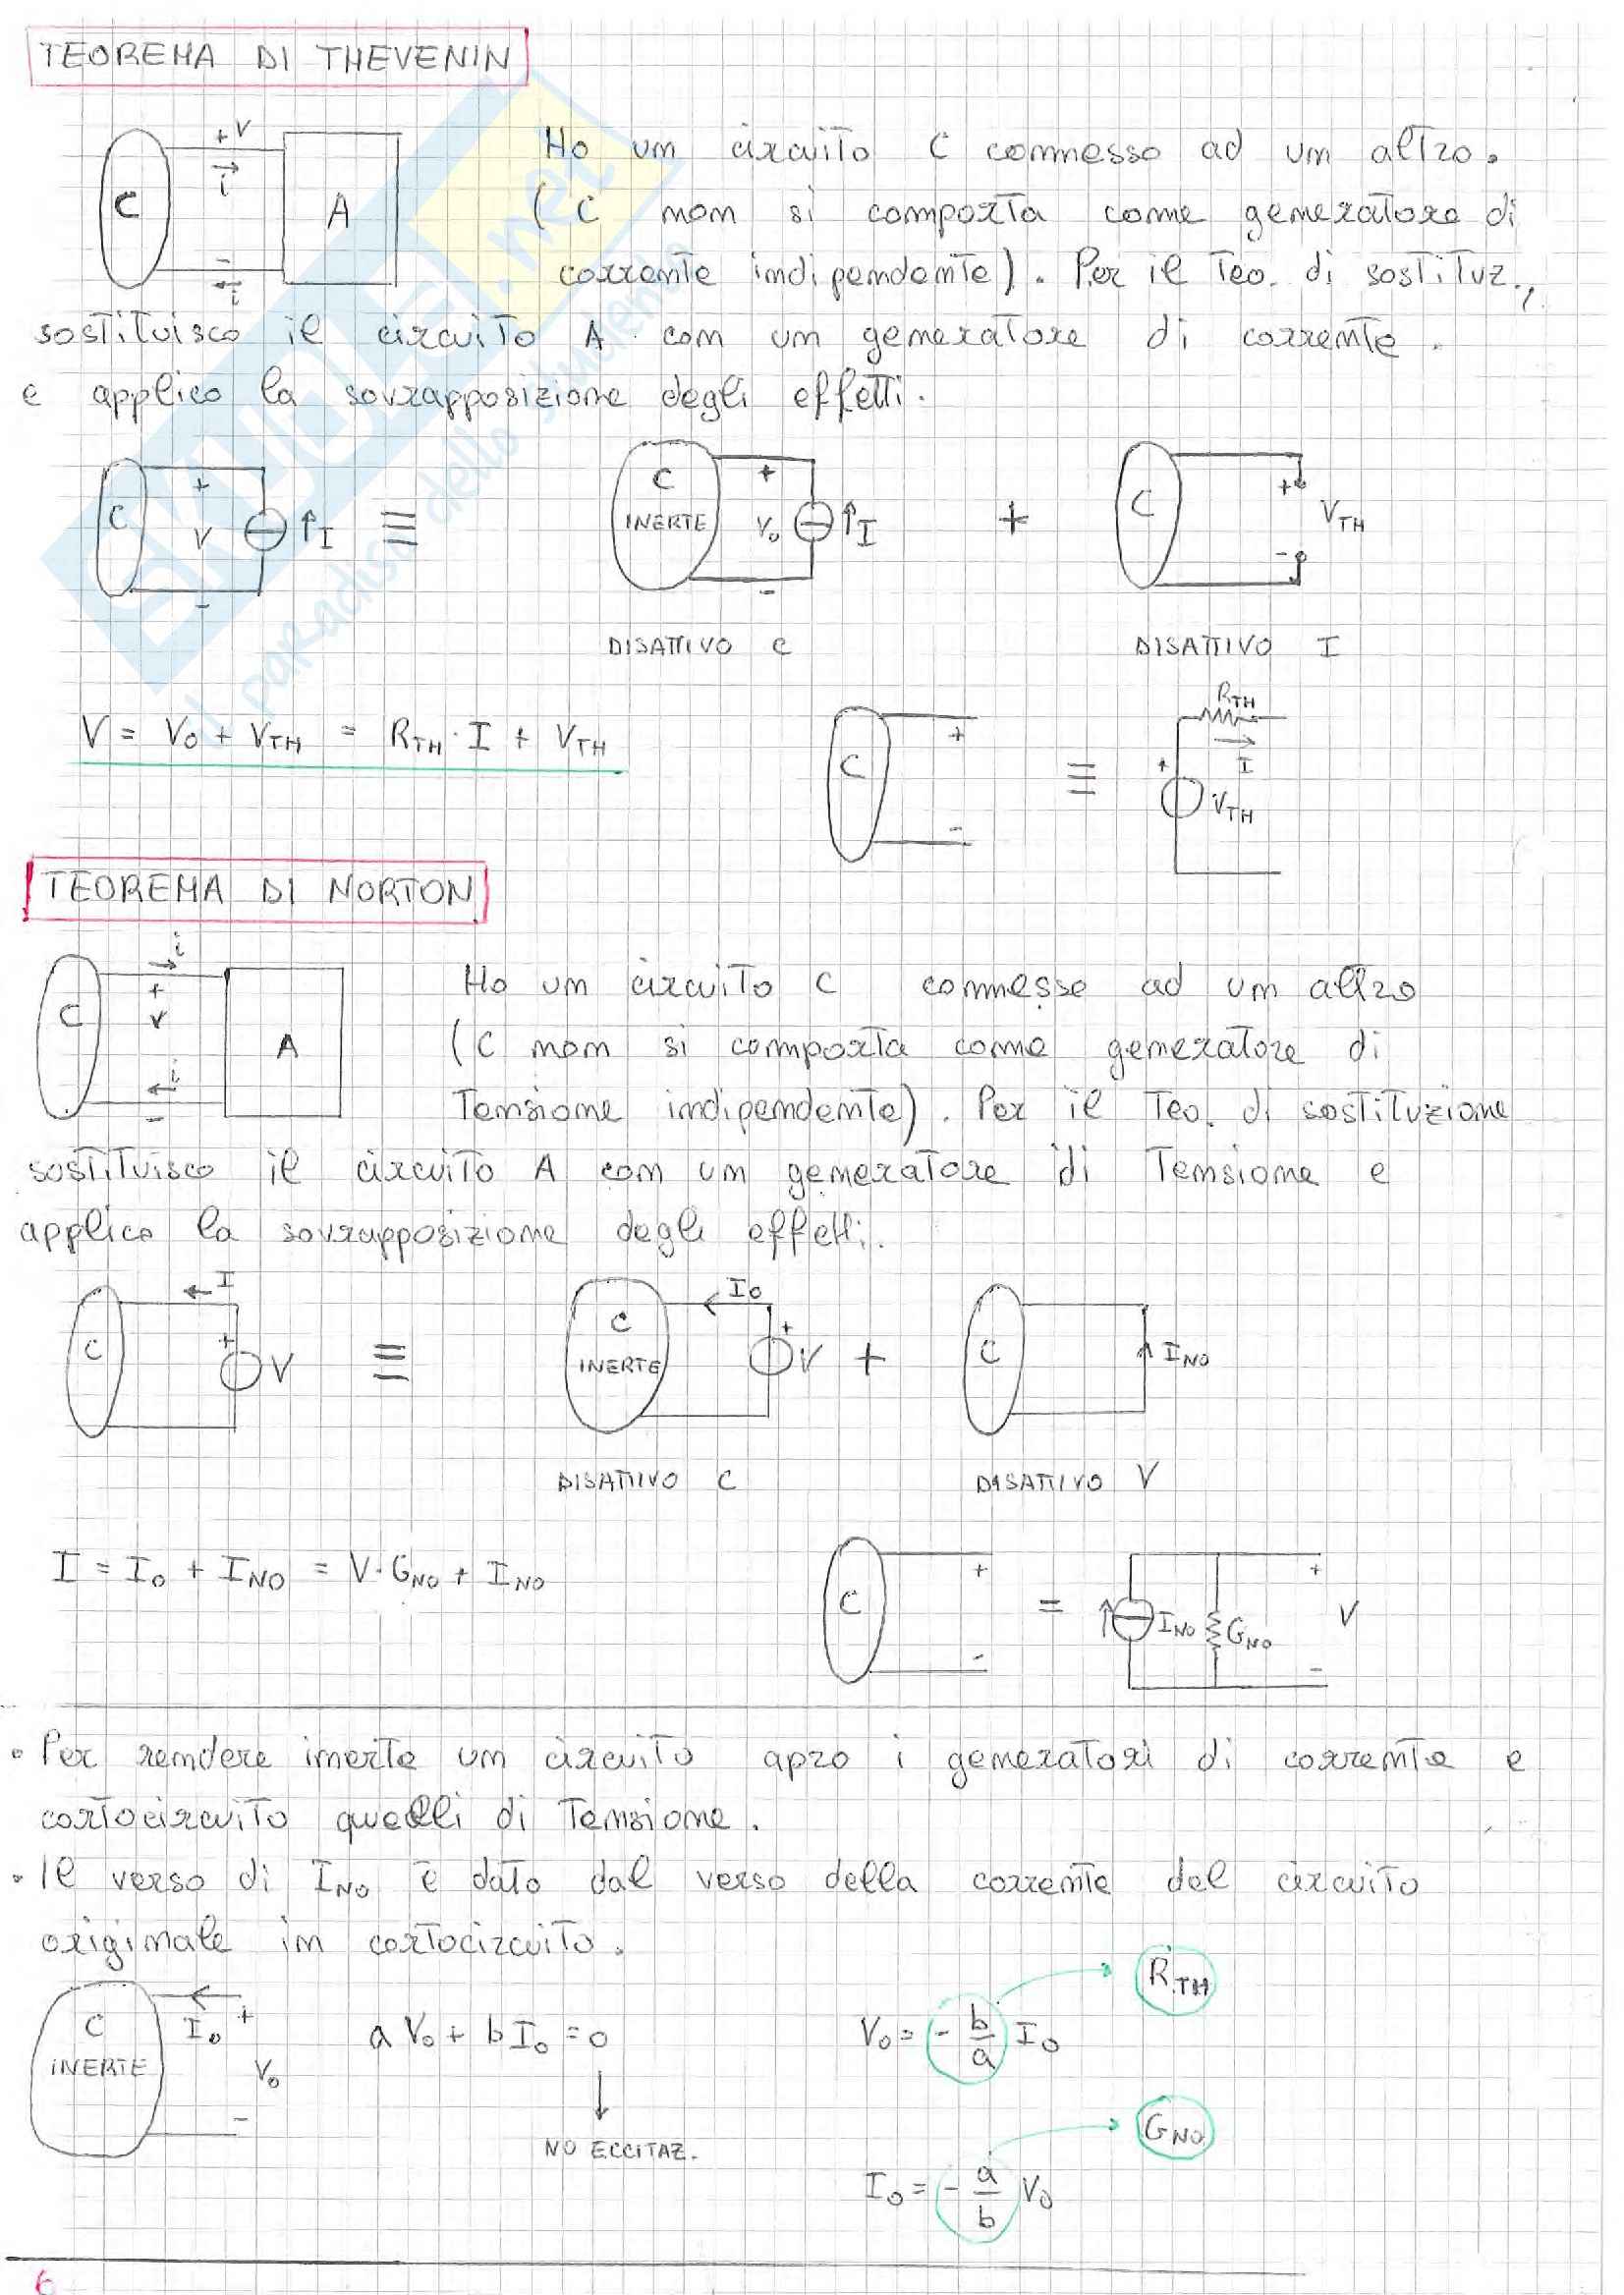 TEOREMA DI THEVENIN
+ V
i
C
A
- i
Ho un circuito C connesso ad un altro.
(C non si comporta come generatore di
corrente indipendente). Per il Teo. di sostituz.,
sostituisco il circuito A con un generatore di corrente.
e applico la sovrapposizione degli effetti.
C + V - ↑I ≡ C INERTE + V₀ - ↑I + C + - V_TH
DISATTIVO C DISATTIVO I
V = V₀ + V_TH = R_TH · I + V_TH
C + - ≡ R_TH I + V_TH
TEOREMA DI NORTON
i
C + V
A
i -
Ho un circuito C connesse ad un altro
(C non si comporta come generatore di
Tensione indipendente). Per il Teo. di sostituzione
sostituisco il circuito A con un generatore di Tensione e
applico la sovrapposizione degli effetti.
C ← I + V ≡ C INERTE ← I₀ + V + C I_NO
DISATTIVO C DISATTIVO V
I = I₀ + I_NO = V · G_NO + I_NO
C + - = ↑ I_NO G_NO + V -
• Per rendere inerte un circuito apro i generatori di corrente e
cortocircuito quelli di Tensione.
• Il verso di I_NO è dato dal verso della corrente del circuito
originale in cortocircuito.
C INERTE ← I₀ + V₀ -
a V₀ + b I₀ = 0
↓
NO ECCITAZ.
V₀ = - b/a I₀ → R_TH
I₀ = - a/b V₀ → G_NO
6
SKUOLA.net
il paradiso dello studente